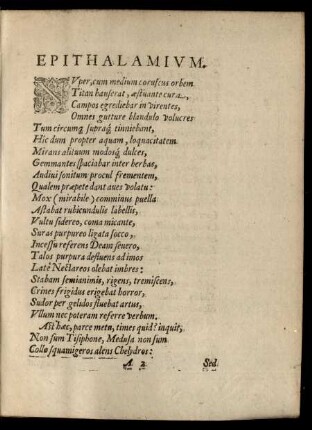 EPITHALAMIVM.
NVper, cum medium coruscus orbem
Titan hauserat, æstuante cura,
Campos egrediebar in virentes,
Omnes gutture blandulo volucres
Tum circumq́ supraq́ tinniebant,
Hic dum propter aquam, loquacitatem
Mirans alituum modosq́ dulces,
Gemmantes spaciabar inter herbas,
Audiui sonitum procul frementem,
Qualem præpete dant aues volatu:
Mox (mirabile) comminus puella
Astabat rubicundulis labellis,
Vultu sidereo, coma micante,
Suras purpureo ligata socco,
Incessu referens Deam seuero,
Talos purpura defluens ad imos
Latè Nectareos olebat imbres:
Stabam semianimis, rigens, tremiscens,
Crines frigidus erigebat horror,
Sudor per gelidos fluebat artus,
Vllum nec poteram referre verbum.
Ast hæc, parce metu, times quid? inquit,
Non sum Tisiphone, Medusa non sum
Collo squamigeros alens Chelydros:
A 2 Sed